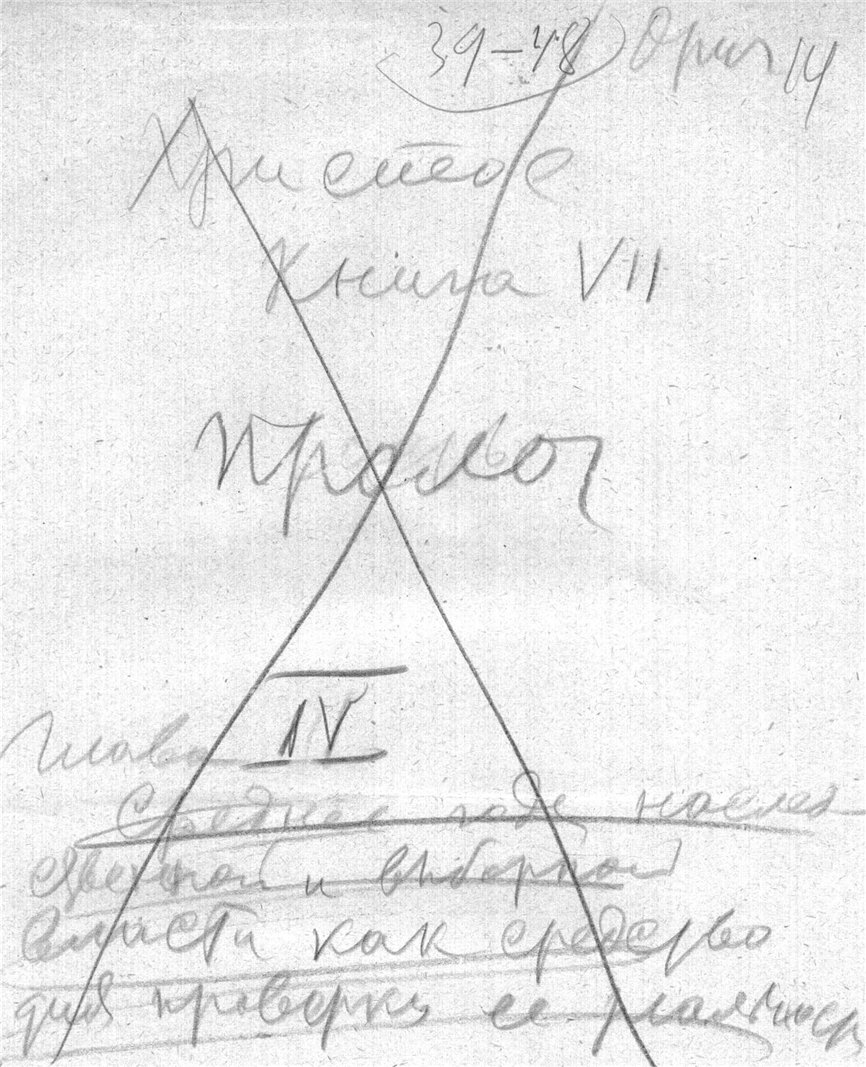 39-48 Ориг 14
Христос
Книга VII
Пролог
Глава IV
Средние годы наслед
ственной и выборной
власти как средство
для проверки ее реальност